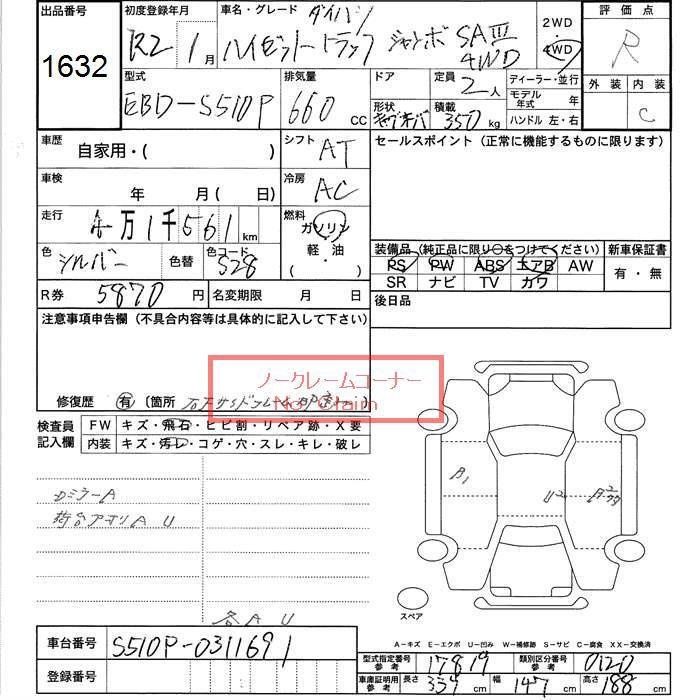 出品番号 初度登録年月 車名・グレード ダイハツ 2WD 評価点
1632 R2年1月 ハイゼットトラック ジャンボ SAIII 4WD 4WD R
型式 排気量 ドア 定員 ディーラー・並行 外装 内装
EBD-S510P 660 CC 2人 モデル年式 年 C
形状 積載 350 kg ハンドル 左・右
車歴 自家用・( ) シフト AT セールスポイント(正常に機能するものに限ります)
車検 年 月( 日) 冷房 AC
走行 万1千561km 燃料 ガソリン
軽・油
( ・ )
色 シルバー 色替 色コード S28
装備品(純正品に限り○をつけてください) 新車保証書
PS PW ABS エアB AW 有・無
SR ナビ TV カワ
R券 5870円 名変期限 月 日 後日品
注意事項申告欄(不具合内容等は具体的に記入して下さい)
ノークレームコーナー
No Claim
修復歴 有 〔箇所 〕
検査員記入欄 FW キズ・飛石・ヒビ割・リペア跡・X要
内装 キズ・汚レ・コゲ・穴・スレ・キレ・破レ
ロミラーA
荷台アオリA U
各A U
B1 U2
スペア
A-キズ E-エクボ U-凹み W-補修跡 S-サビ C-腐食 XX-交換済
車台番号 S510P-0311691
登録番号
型式指定番号 参考 17819 類別区分番号 参考 0120
車庫証明用 参考 長さ 339cm 幅 147cm 高さ 188cm